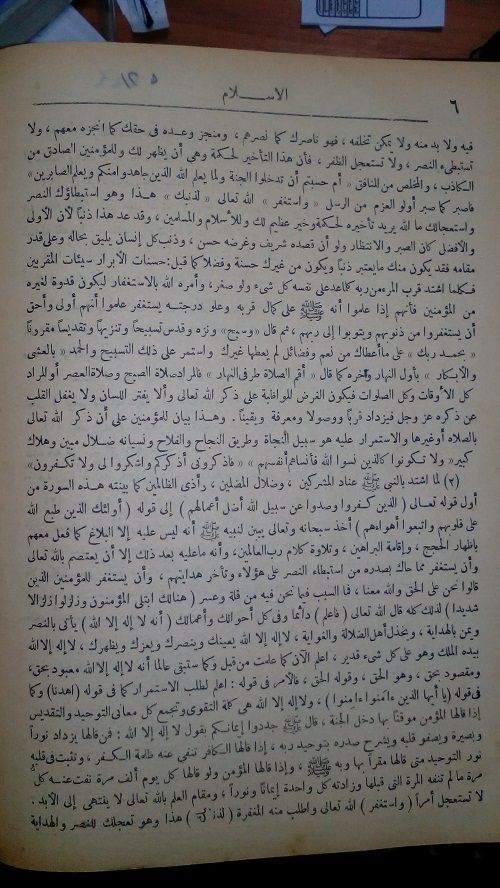 الاسلام
٦
فيه ولا بد منه ولا يمكن تخلفه ، فهو ناصرك كما نصرهم ، ومنجز وعده فى حقك كما انجزه معهم ، ولا
تستبطىء النصر ، ولا تستعجل الظفر ، فأن هذا التأخير لحكمة وهى أن يظهر لك وللمؤمنين الصادق من
الكاذب ، والمخلص من المنافق « أم حسبتم أن تدخلوا الجنة ولما يعلم الله الذين جاهدوا منكم ويعلم الصابرين »
فاصبر كما صبر أولو العزم من الرسل « واستغفر » الله تعالى « لذنبك » هذا وهو استبطاؤك النصر
واستعجالك ما الله يريد تأخيره لحكمة وخير عظيم لك وللأسلام والمسلمين ، وقد عد هذا ذنباً لآن الأولى
والأفضل كان الصبر والانتظار ولو أن قصده شريف وغرضه حسن ، وذنب كل إنسان يليق بحاله وعلى قدر
مقامه فقد يكون منك مايعتبر ذنباً ويكون من غيرك حسنة وفضلا كما قيل : حسنات الأبرار سيئات المقربين
فكلما اشتد قرب المرء من ربه كلما عد على نفسه كل شىء ولو صغر ، وأمره الله بالاستغفار ليكون قدوة لغيره
من المؤمنين فأنهم إذا علموا أنه ﷺ على كمال قربه وعلو درجته يستغفر علموا أنهم أولى وأحق
أن يستغفروا من ذنوبهم ويتوبوا إلى ربهم ، ثم قال « وسبح » ونزه وقدس تسبيحاً وتنزيهاً وتقديساً مقروناً
« بحمد ربك » على ما أعطاك من نعم وفضائل لم يعطها غيرك واستمر على ذلك التسبيح والحمد « بالعشى
والأبكار » بأول النهار وآخره كما قال « أقم الصلاة طرفى النهار » فالمراد صلاة الصبح وصلاة العصر أو المراد
كل الأوقات وكل الصلوات فيكون الغرض المواظبة على ذكر الله تعالى وألا يفتر اللسان ولا يغفل القلب
عن ذكره عز وجل فيزداد قرباً ووصولا ومعرفة ويقيناً . وهذا بيان للمؤمنين على أن ذكر الله تعالى
بالصلاه أو غيرها والاستمرار عليه هو سبيل النجاة وطريق النجاح والفلاح ونسيانه ضلال مبين وهلاك
كبير « ولا تكونوا كالذين نسوا الله فأنساهم أنفسهم » « فاذكرونى أذكركم واشكروا لى ولا تكفرون »
(٢) لما اشتد بالنبى ﷺ عناد المشركين ، وضلال المضلين ، وأذى الظالمين كما بينته هذه السورة من
أول قوله تعالى ( الذين كفروا وصدوا عن سبيل الله أضل أعمالهم ) إلى قوله ( أولئك الذين طبع الله
على قلوبهم واتبعوا أهواءهم ) أخذ سبحانه وتعالى يبين لنبيه ﷺ أنه ليس عليه إلا البلاغ كما فعل معهم
باظهار الحجج ، وإقامة البراهين ، وتلاوة كلام رب العالمين ، وأنه ماعليه بعد ذلك إلا أن يعتصم بالله تعالى
وأن يستغفر مما حاك بصدره من استبطاء النصر على هؤلاء وتأخر هدايتهم ، وأن يستغفر للمؤمنين الذين
قالوا نحن على الحق والله معنا ، فما السبب فيما نحن فيه من قلة وعسر ( هنالك ابتلى المؤمنون وزلزلوا زلزالا
شديدا ) لذلك كله قال الله تعالى ( فاعلم ) دائماً وفى كل أحوالك وأعمالك ( أنه لا إله إلا الله ) يأتى بالنصر
ويمن بالهداية ، ويخذل أهل الضلالة والغواية ، لا إله إلا الله يعينك وينصرك ويعزك ويظهرك ، لا إله إلا الله
بيده الملك وهو على كل شىء قدير ، اعلم الآن كما علمت من قبل وكما ستبقى عالما أنه لا إله إلا الله معبود بحق ،
ومقصود بحق ، وهو الحق ، وقوله الحق ، فالأمر فى قوله : اعلم لطلب الاستمرار كما فى قوله ( اهدنا ) وكما
فى قوله ( يا أيها الذين ءامنوا ءامنوا ) ، ولا إله إلا الله هى كلمة التقوى وتجمع كل معانى التوحيد والتقديس
إذا قالها المؤمن موقنًا بها دخل الجنة ، قال ﷺ جددوا إيمانكم بقول لا إله إلا الله : فمن قالها يزداد نوراً
وبصيرة ويصفو قلبه وينشرح صدره بتوحيد ربه ، إذا قالها الكافر تنفى عنه ظلمة الكفر ، وتثبت فى قلبه
نور التوحيد متى قالها مقراً بها وبه ﷺ ، وإذا قالها المؤمن ولو قالها كل يوم ألف مرة نفت عنه كل
مرة ما لم تنفه المرة التى قبلها وزادته كل واحدة إيماناً ونوراً ، ومقام العلم بالله تعالى لا ينتهى إلى الأبد .
لا تستعجل أمراً ( واستغفر ) الله تعالى واطلب منه المغفرة ( لذنبك ) هذا وهو تعجلك للنصر والهداية